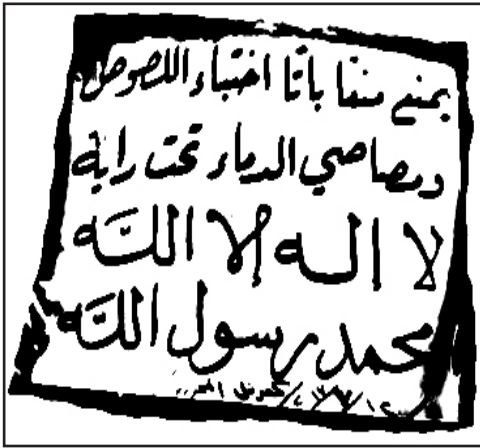 يمنع منعا باتا اختباء اللصوص
ومصاصي الدماء تحت راية
لا إله إلا اللّه
محمد رسول اللّه